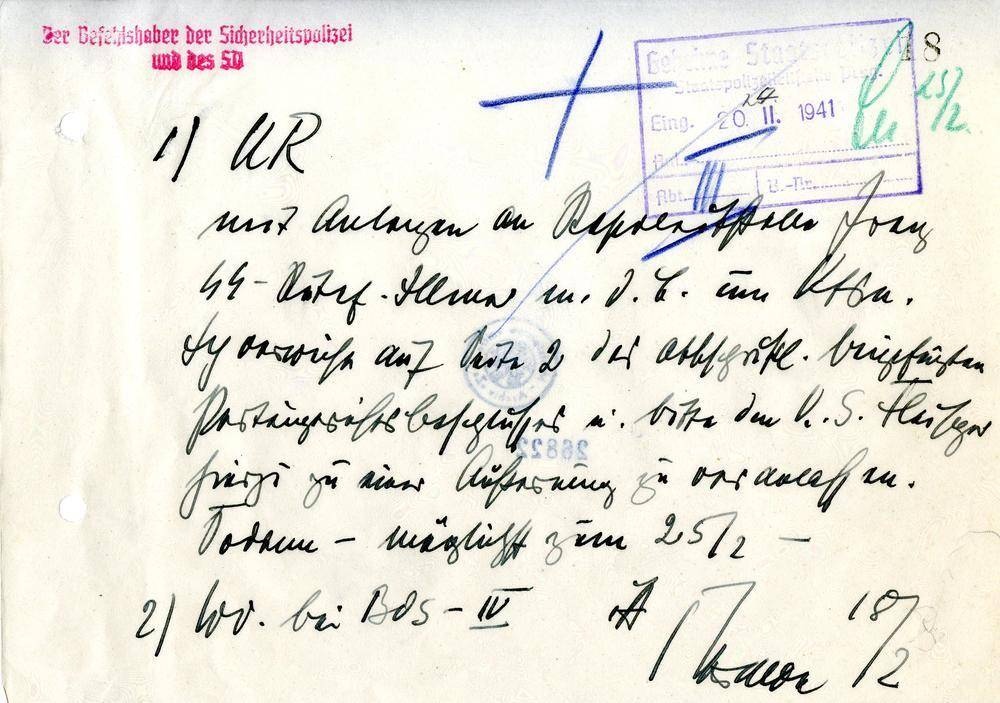 Der Befehlshaber der Sicherheitspolizei
und des SD
Geheime Staatspolizei
Staatspolizeileitstelle Prag.
Eing. 20. II. 1941
24
Anl.
Abt. III B.-Nr.
18
25/2.
1) UR
mit Anlagen an Stapoleitstelle Prag
SS-
m. d. B. um Ktsn.
Ich verweise auf Seite 2 des abschriftl. beigefügten
Parteigerichtsbeschlusses u. bitte den V. S. Fleischer
hierzu zu einer Äußerung zu veranlassen.
Sodann – möglichst zum 25/2 –
2) Wv. bei BdS – IV
18/2
26822